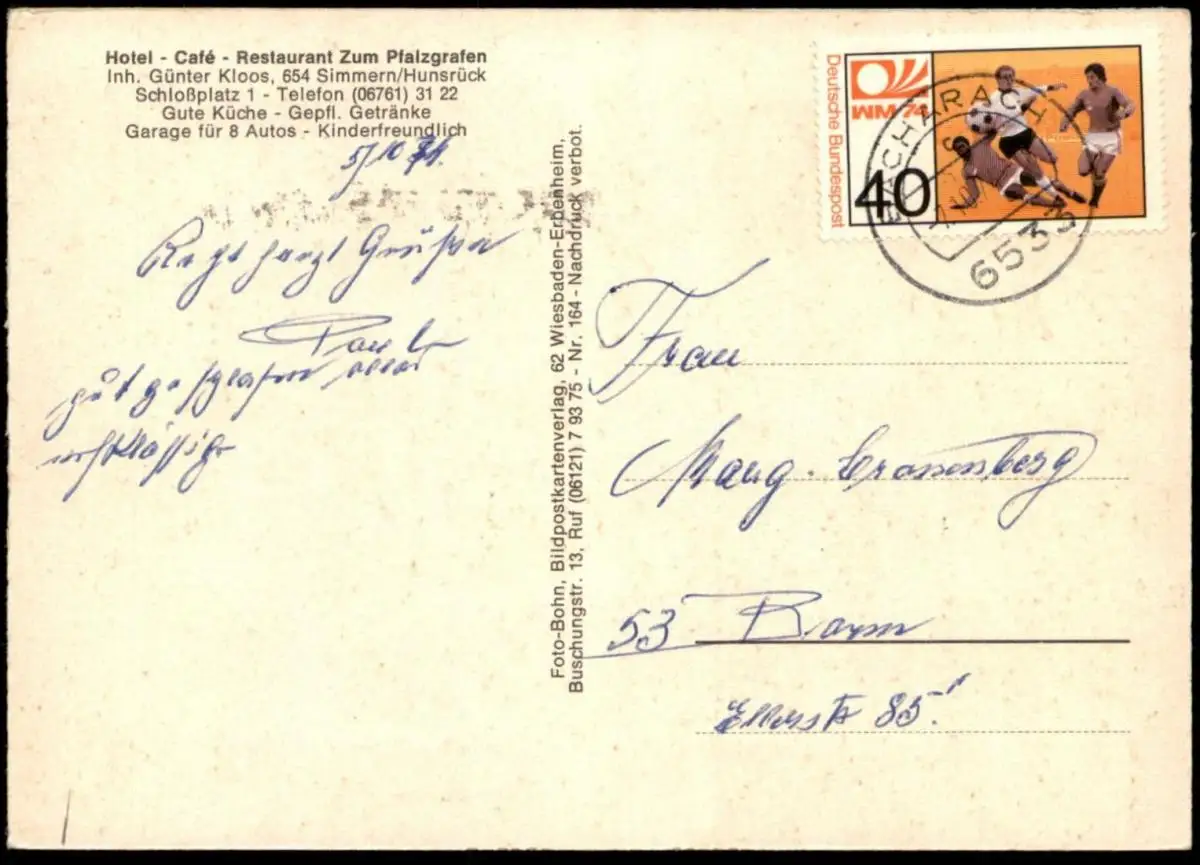 Hotel - Café - Restaurant Zum Pfalzgrafen
Inh. Günter Kloos, 654 Simmern/Hunsrück
Schloßplatz 1 - Telefon (06761) 31 22
Gute Küche - Gepfl. Getränke
Garage für 8 Autos - Kinderfreundlich
5/10 74.
Grüße
gut geschlafen
Foto-Bohn, Bildpostkartenverlag, 62 Wiesbaden-Erbenheim,
Buschungstr. 13, Ruf (06121) 7 93 75 - Nr. 164 - Nachdruck verbot.
Deutsche Bundespost
WM 74
40
BACHARACH
6533
Frau
Marg. Cronenberg
53 Bonn
Ellerstr 85.